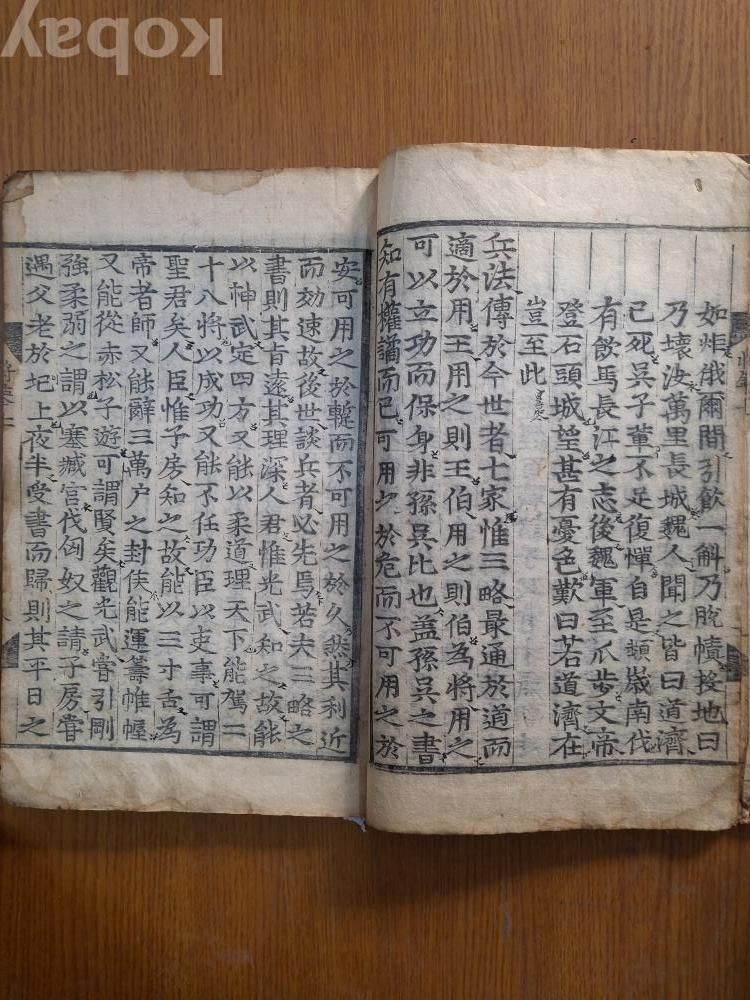 kobay
如炸俄爾間引飲一斛乃脫幘投地曰
乃壞汝萬里長城魏人聞之皆曰道濟
已死吳子軰不足復憚自是頻歲南伐
有飮馬長江之志後魏軍至瓜步文帝
登石頭城望甚有憂色歎曰若道濟在
豈至此
兵法傳於今世者七家惟三略最通於道而
適於用王用之則王伯用之則伯為將用之
可以立功而保身非孫吳比也盖孫吳之書
知有權譎而已可用之於危而不可用之於
安可用之於蹔而不可用之於久然其利近
而効速故後世談兵者必先焉若夫三略之
書則其旨遠其理深人君惟光武知之故能
以神武定四方又能以柔道理天下能駕二
十八將以成功又能不任功臣以吏事可謂
聖君矣人臣惟子房知之故能以三寸舌為
帝者師又能辭三萬户之封侯能運籌帷幄
又能從赤松子遊可謂賢矣觀光武嘗引剛
強柔弱之謂以塞臧官伐匈奴之請子房嘗
遇父老於圯上夜半受書而歸則其平日之